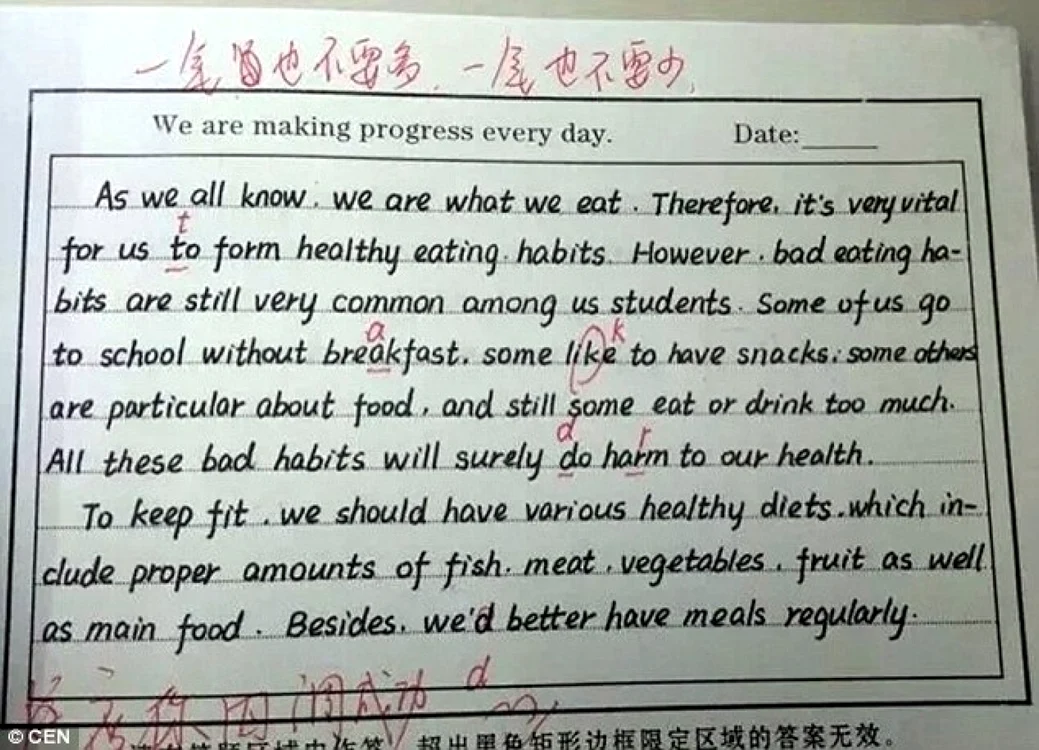 一尾也不要多，一尾也不要少，
We are making progress every day. Date:______
As we all know, we are what we eat. Therefore, it's very vital
t
for us to form healthy eating habits. However, bad eating ha-
bits are still very common among us students. Some of us go
a k
to school without breakfast, some like to have snacks; some others
are particular about food, and still some eat or drink too much.
d r
All these bad habits will surely do harm to our health.
To keep fit, we should have various healthy diets, which in-
clude proper amounts of fish, meat, vegetables, fruit as well
as main food. Besides, we'd better have meals regularly.
成功 d
请在答题区域内作答，超出黑色矩形边框限定区域的答案无效。
© CEN